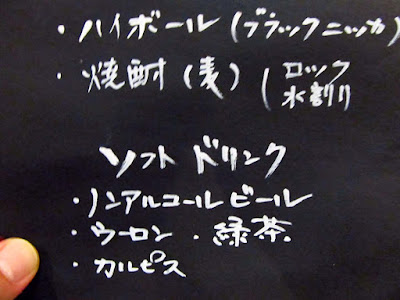 ・ハイボール(ブラックニッカ)
・焼酎(麦)(ロック
水割り
ソフトドリンク
・ノンアルコールビール
・ウーロン ・緑茶
・カルピス